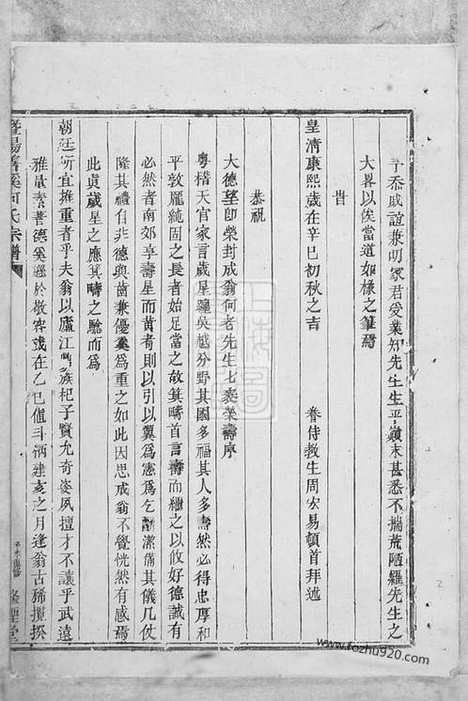 予忝戚誼兼明冢君受業知先生生平顛末甚悉不揣荒陋羅先生之
大畧以俟當道如椽之筆焉
旹
皇清康熙歲在辛巳初秋之吉
眷侍教生周宏易頓首拜述
恭祝
大德望卽榮封成翁何老先生七袠榮壽序
粵稽天官家言歲星躔吳越分野其國多福其人多壽然必得忠厚和
平敦龐純固之長者始足當之故箕疇首言壽而繼之以攸好德誠有
必然者南郊享壽星而黃耉則引以翼爲憲爲乞酳潔脩其几仗
隆其禮自非德與齒兼優奚爲重之如此因思成翁不覺恍然有感焉
此眞歲星之應箕疇之驗而爲
朝廷所宜擁重者乎夫翁以廬江 族杞子賢允奇姿夙擅才不讓乎武遠
雅量 著德奚遜於敬容歲在乙巳値斗柄建亥之月逢翁古稀攬揆
暨陽 溪何氏宗譜
www.fozhu920.com